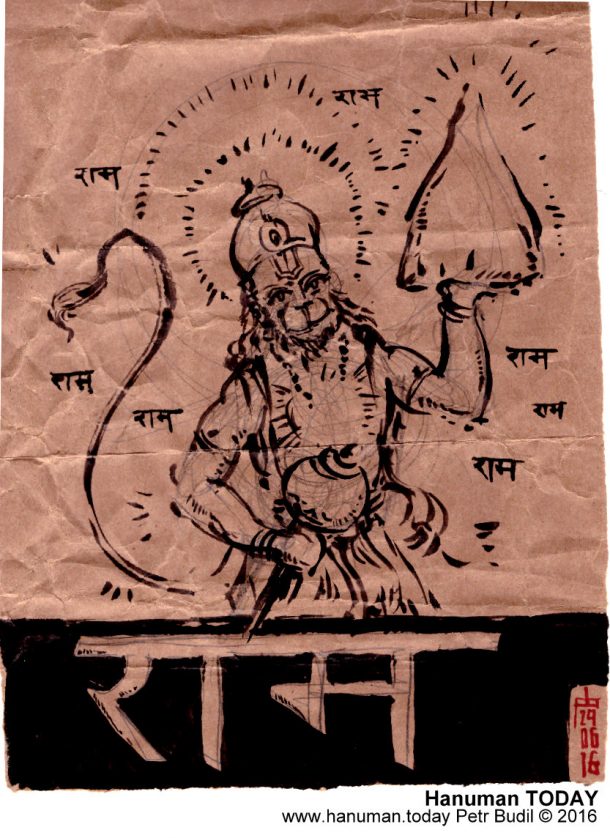 राम
राम
राम
राम
राम
राम
राम
राम
29
06
16
Hanuman TODAY
www.hanuman.today Petr Budil © 2016